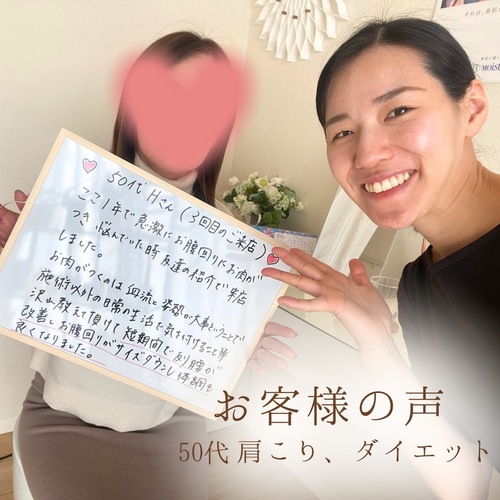 それは、
MOIST
50代 Hさん (3回目のご来店)
ここ1年で急激にお腹回りにお肉が
つき、悩んでいた時 友達の紹介で来店
しました。
お肉がつくのは血流と姿勢が大事ということで
施術以外の日常の生活で気を付けること等
沢山教えて頂けて 短期間で反り腰が
改善しお腹回りがサイズダウンし 体調も
良くなりました。
お客様の声
50代 肩こり、ダイエット